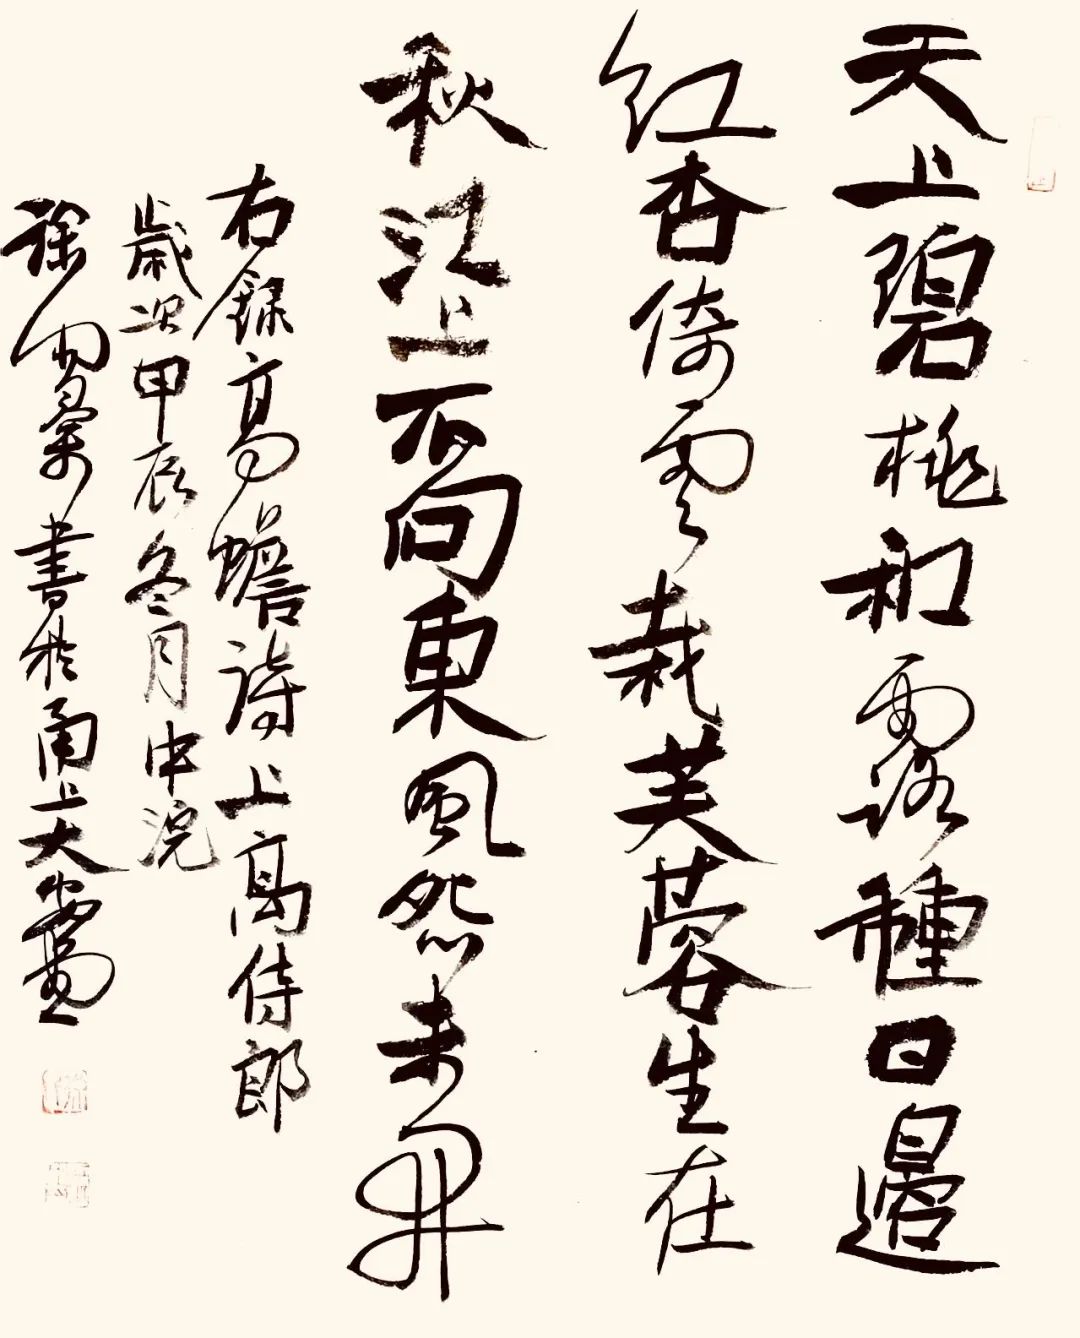 天上碧桃和露種日邊
紅杏倚雲栽芙蓉生在
秋江上不向東風怨未開
右錄高蟾詩上高侍郎
歲次甲辰冬月中浣
徐書於甬上大